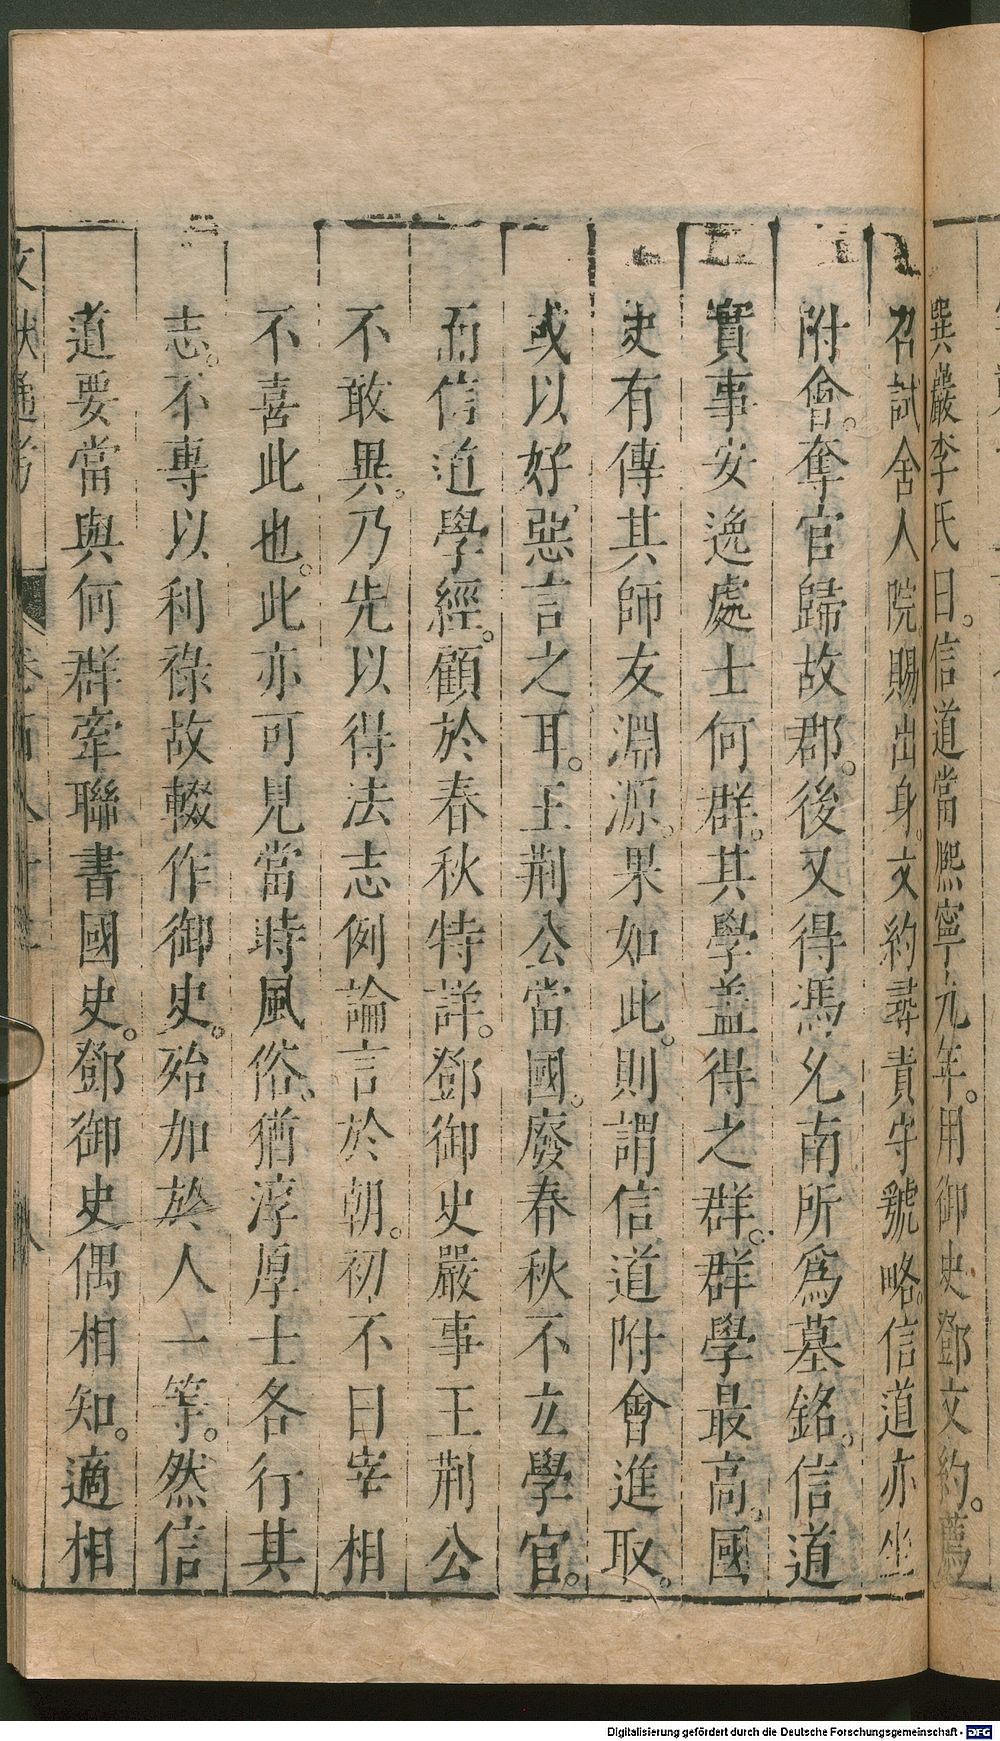 巽巖李氏曰。信道當熙寧九年。用御史鄧文約。薦
召試舍人院。賜出身。文約尋責守虢略。信道亦坐
附會。奪官歸故郡。後又得馮允南所爲墓銘。信道
實事安逸處士何群。其學蓋得之群。群學最高。國
史有傳其師友淵源。果如此。則謂信道附會進取。
或以好惡言之耳。王荆公當國。廢春秋不立學官。
而信道學經。顧於春秋特詳。鄧御史嚴事王荆公
不敢異。乃先以得法志例論言於朝。初不曰宰相
不喜此也。此亦可見當時風俗、猶淳厚士各行其
志。不專以利祿故輟作御史。殆加於人一等。然信
道要當與何群牽聯書國史。鄧御史偶相知。適相
文獻通考 卷百八十三
Digitalisierung gefördert durch die Deutsche Forschungsgemeinschaft - DFG